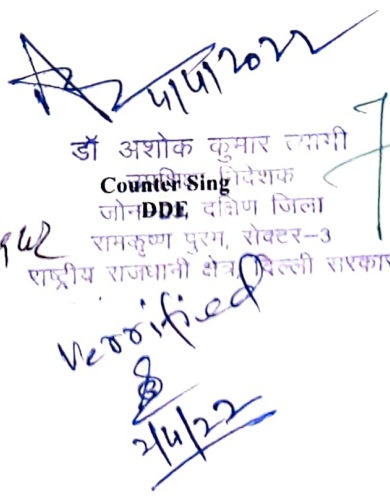 4/4/2022
डॉ अशोक कुमार त्यागी
Counter Sing निदेशक
जोन DDE, दक्षिण जिला
रामकृष्ण पुरम, सेक्टर-3
राष्ट्रीय राजधानी क्षेत्र, दिल्ली सरकार
Verrified
2/4/22